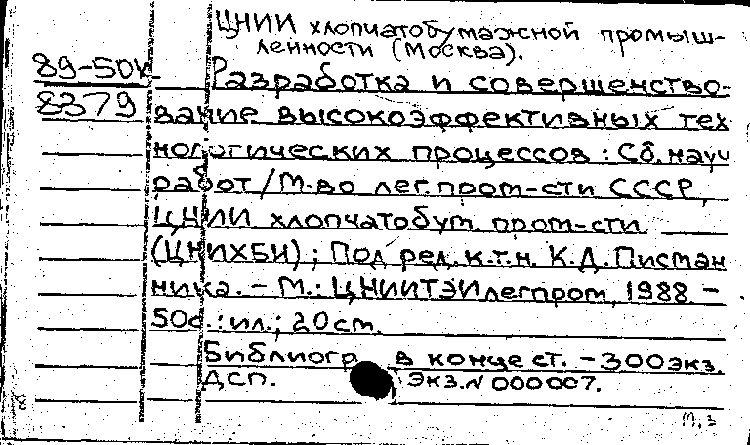 ЦНИИ хлопчатобумажной промыш-
ленности (Москва).
89-50к Разработка и совершенство-
8379 вание высокоэффективных тех
нологических процессов : Сб. науч
работ / М-во лег. пром-сти СССР,
ЦНИИ хлопчатобум. пром-сти
(ЦНИХБИ) ; Под ред. к.т.н. К.Д. Писман
ника. - М.: ЦНИИТЭИлегпром, 1988. -
50с. : ил. ; 20 см.
Библиогр. в конце ст. - 300 экз.
ДСП. Экз. N 000007.